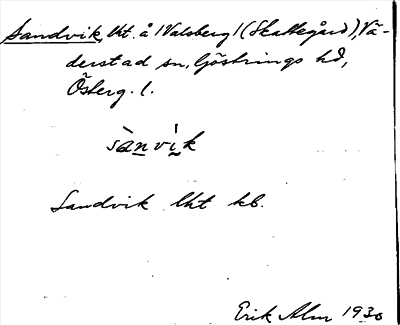 Sandvik, lht. å 1 Valsberg 1 (Skattegård), Vä-
derstad sn, Göstrings hd,
Österg. l.
sànvi̬k
Sandvik lht kb.
Erik Alm 1930